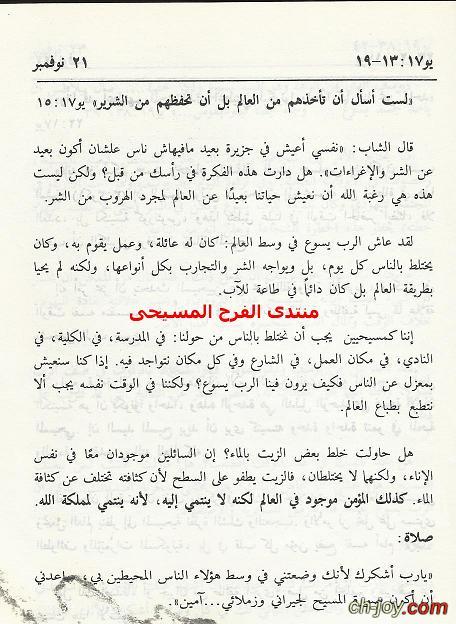 يو١٧ :١٣-١٩ ٢١ نوفمبر
«لست أسأل أن تأخذهم من العالم بل أن تحفظهم من الشرير» يو١٧ :١٥
قال الشاب: «نفسي أعيش في جزيرة بعيد مافيهاش ناس علشان أكون بعيد
عن الشر والإغراءات». هل دارت هذه الفكرة في رأسك من قبل؟ ولكن ليست
هذه هي رغبة الله أن نعيش حياتنا بعيدًا عن العالم لمجرد الهروب من الشر.
لقد عاش الرب يسوع في وسط العالم: كان له عائلة، وعمل يقوم به، وكان
يختلط بالناس كل يوم، بل ويواجه الشر والتجارب بكل أنواعها، ولكنه لم يحيا
بطريقة العالم بل كان دائمًا في طاعة للآب.
منتدى الفرح المسيحى
إننا كمسيحيين يجب أن نختلط بالناس من حولنا: في المدرسة، في الكلية، في
النادي، في مكان العمل، في الشارع وفي كل مكان نتواجد فيه. إذا كنا سنعيش
بمعزل عن الناس فكيف يرون فينا الرب يسوع؟ ولكننا في الوقت نفسه يجب ألا
نتطبع بطباع العالم.
هل حاولت خلط بعض الزيت بالماء؟ إن السائلين موجودان معًا في نفس
الإناء، ولكنهما لا يختلطان، فالزيت يطفو على السطح لأن كثافته تختلف عن كثافة
الماء. كذلك المؤمن موجود في العالم لكنه لا ينتمي إليه، لأنه ينتمي لمملكة الله.
صلاة:
«يارب أشكرك لأنك وضعتني في وسط هؤلاء الناس المحيطين بي، ساعدني
أن أكون صورة المسيح لجيراني وزملائي...آمين».
ch-joy.com